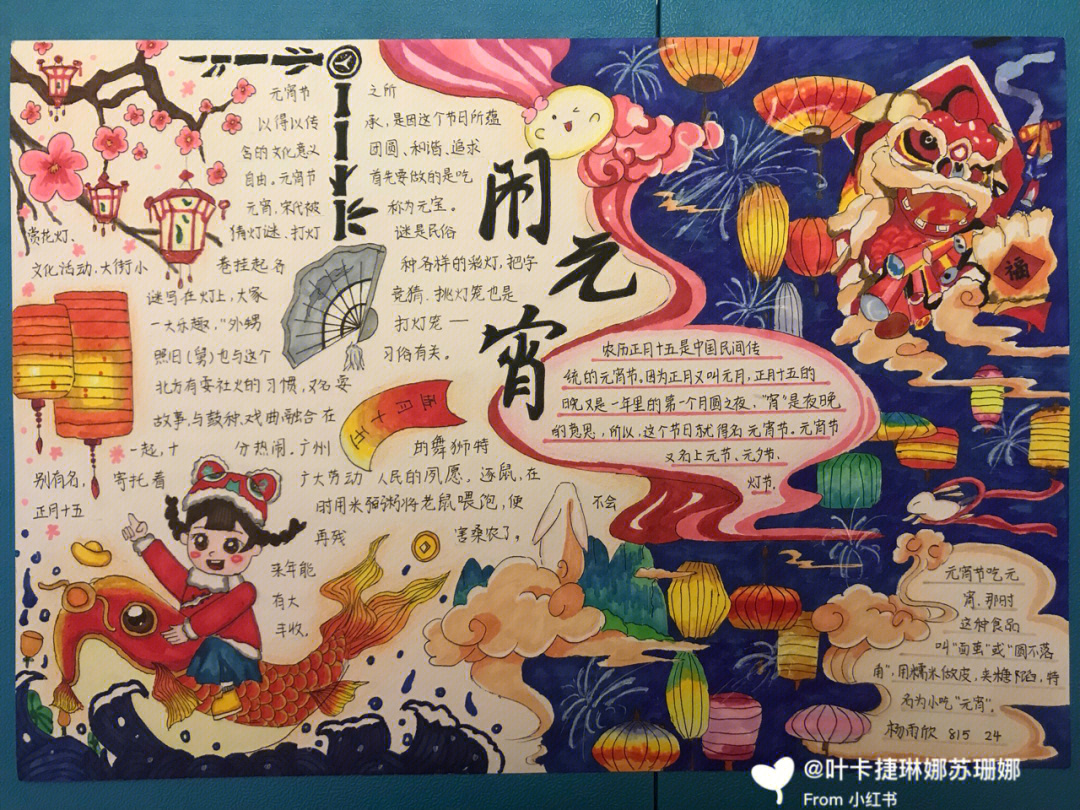 元宵节 之所
以得以传 承，是因这个节日所蕴
含的文化意义 团圆、和谐、追求
自由。元宵节 首先要做的是吃
元宵，宋代被 称为元宝。
赏花灯、 猜灯谜、打灯 谜是民俗
文化活动、大街小 巷挂起各 种各样的彩灯，把字
谜写在灯上，大家 竞猜、挑灯笼也是
一大乐趣，“外甥 打灯笼一
照旧(舅)也与这个 习俗有关。
北方有耍社火的习惯，又名耍
故事、与鼓种、戏曲融合在
一起，十 分热闹。广州 的舞狮特
别有名， 寄托着 广大劳动 人民的夙愿， 逐鼠，在
正月十五 时用米粥将老鼠喂饱，便 不会
再残 害桑农了。
来年能
有大
丰收。
正月十五
闹元宵
农历正月十五是中国民间传
统的元宵节。因为正月又叫元月，正月十五的
晚又是一年里的第一个月圆之夜，“宵”是夜晚
的意思，所以，这个节日就得名元宵节。元宵节
又名上元节、元夕节、
灯节。
福
元宵节吃元
宵，那时
这种食品
叫“面茧”或“圆不落
角”，用糯米做皮，夹糖陷，特
名为小吃“元宵”。
杨雨欣 815 24
@叶卡捷琳娜苏珊娜
From 小红书